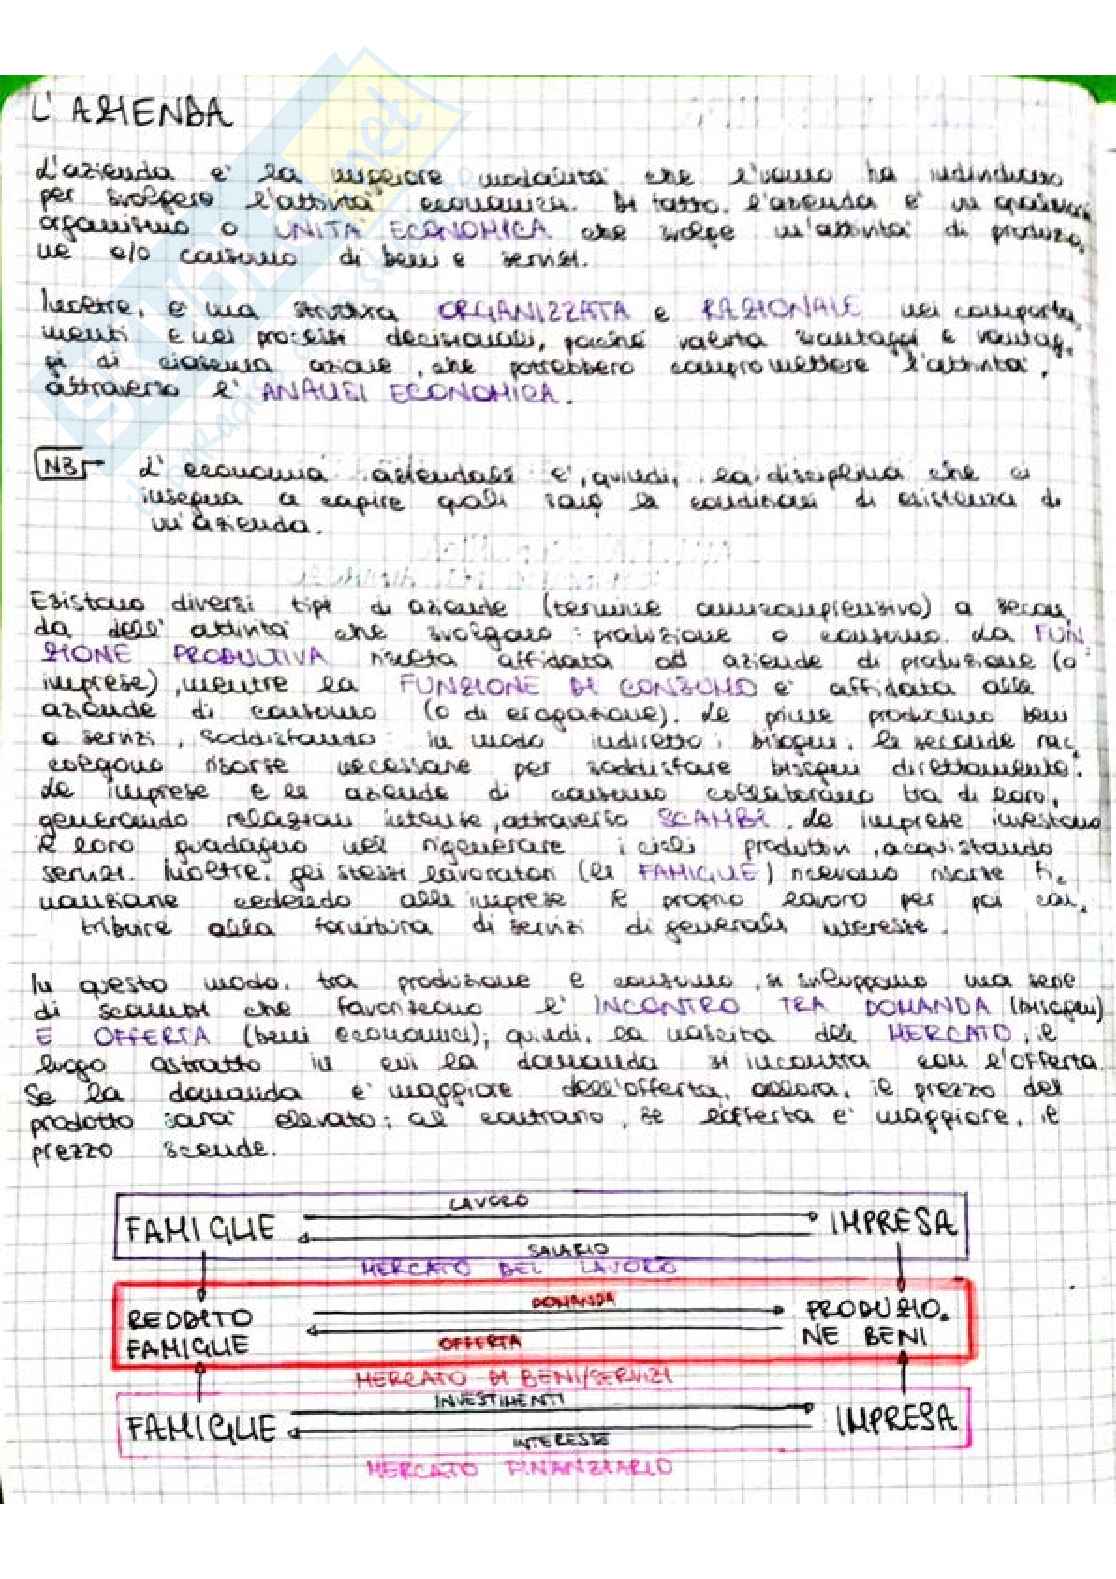 L'AZIENDA
L'azienda è la migliore modalità che l'uomo ha individuato
per svolgere l'attività economica. Di fatto, l'azienda è un qualsiasi
organismo o UNITÀ ECONOMICA che svolge un'attività di produzio,
ne e/o consumo di beni e servizi.
Inoltre, è una struttura ORGANIZZATA e RAZIONALE nei comporta,
menti e nei processi decisionali, poiché valuta svantaggi e vantag,
gi di ciascuna azione, che potrebbero compromettere l'attività,
attraverso l'ANALISI ECONOMICA.
NB → L'economia aziendale è, quindi, la disciplina che ci
insegna a capire quali sono le condizioni di esistenza di
un'azienda.
Esistono diversi tipi di aziende (termine omnicomprensivo) a secon,
da dell'attività che svolgono: produzione o consumo. La FUN,
ZIONE PRODUTTIVA risulta affidata ad aziende di produzione (o
imprese), mentre la FUNZIONE DI CONSUMO è affidata alle
aziende di consumo (o di erogazione). Le prime producono beni
o servizi, soddisfando in modo indiretto i bisogni, le seconde rac,
colgono risorse necessarie per soddisfare bisogni direttamente.
Le imprese e le aziende di consumo collaborano tra di loro,
generando relazioni intense, attraverso SCAMBI. Le imprese investono
il loro guadagno nel rigenerare i cicli produttivi, acquistando
servizi. Inoltre, gli stessi lavoratori (le FAMIGLIE) ricevono risorse fi,
nanziarie cedendo alle imprese il proprio lavoro per poi con,
tribuire alla fornitura di servizi di generale interesse.
In questo modo, tra produzione e consumo, si sviluppano una serie
di scambi che favoriscono l'INCONTRO TRA DOMANDA (bisogni)
E OFFERTA (beni economici); quindi, la nascita del MERCATO, il
luogo astratto in cui la domanda si incontra con l'offerta.
Se la domanda è maggiore dell'offerta, allora, il prezzo del
prodotto sarà elevato; al contrario, se l'offerta è maggiore, il
prezzo scende.
LAVORO
FAMIGLIE IMPRESA
SALARIO
MERCATO DEL LAVORO
DOMANDA
REDDITO PRODUZIO,
FAMIGLIE OFFERTA NE BENI
MERCATO DI BENI/SERVIZI
INVESTIMENTI
FAMIGLIE IMPRESA
INTERESSE
MERCATO FINANZIARIO